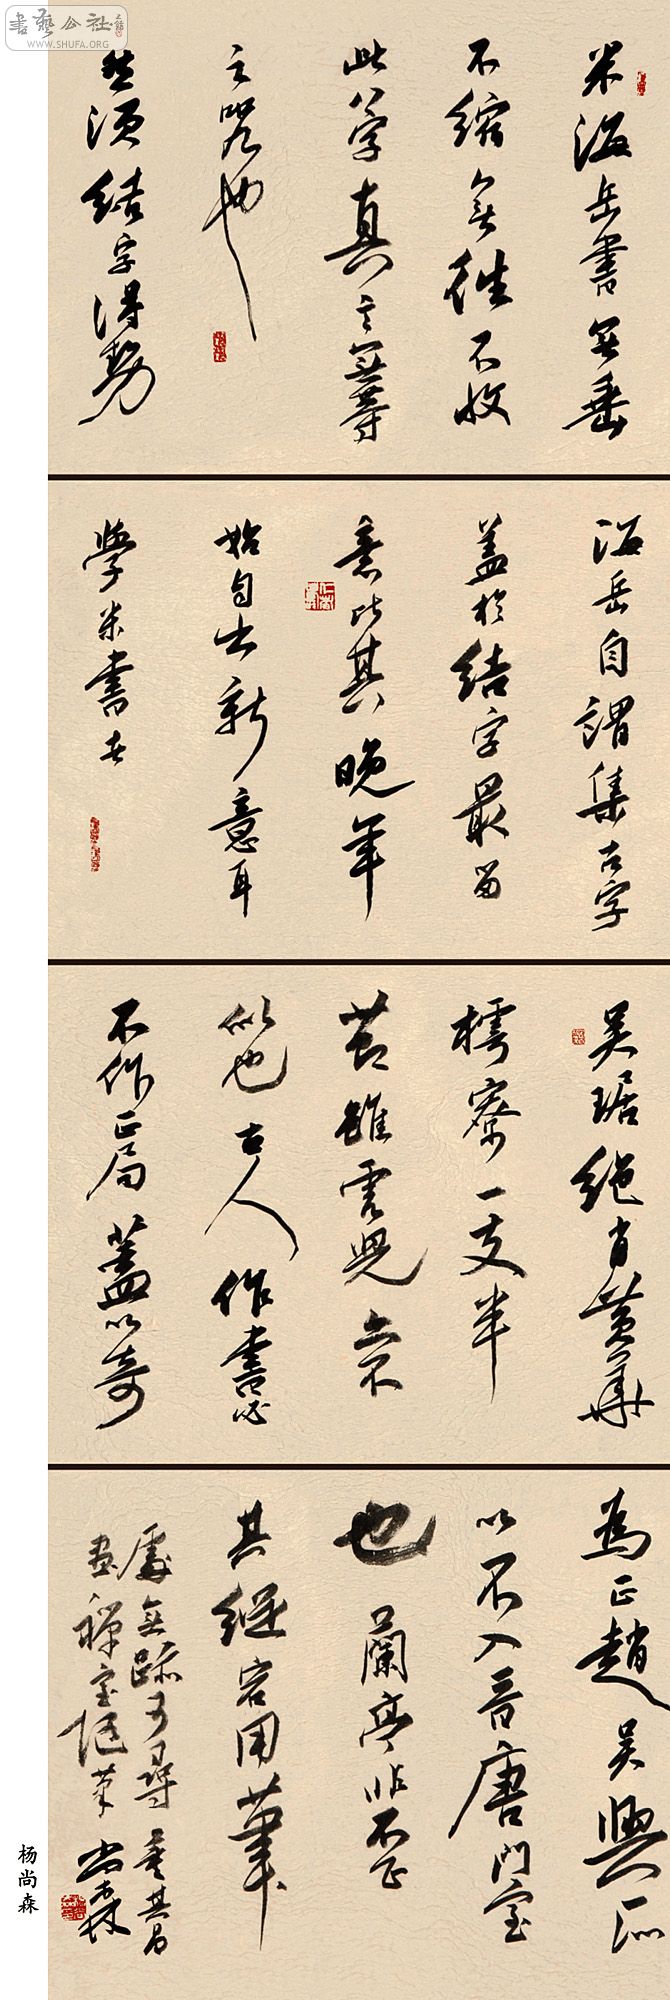 書藝公社
WWW.SHUFA.ORG
米海岳書無垂
不縮無往不收
此八字真言無等
之咒也
然須結字得勢
海岳自謂集古字
蓋於結字最留
意比其晚年
始自出新意耳
學米書者
吳琚絕肖黃華
樗寮一支半
節雖虎兒亦不
似也古人作書必
不作正局蓋以奇
為正趙吳興所
以不入晉唐門室
也蘭亭非不正
其縱宕用筆
處無跡可尋董其昌
畫禪室隨筆尚森
杨尚森